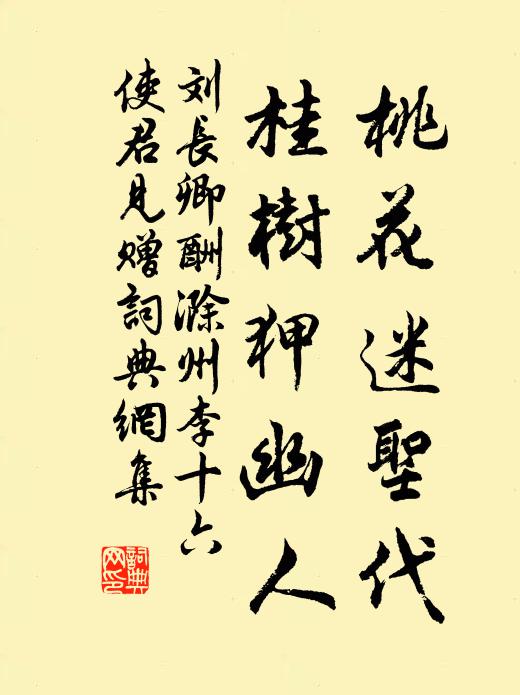 桃花迷聖代
桂樹狎幽人
刘長卿酬滁州李十六
使君見贈詞典網集
詞典
网印